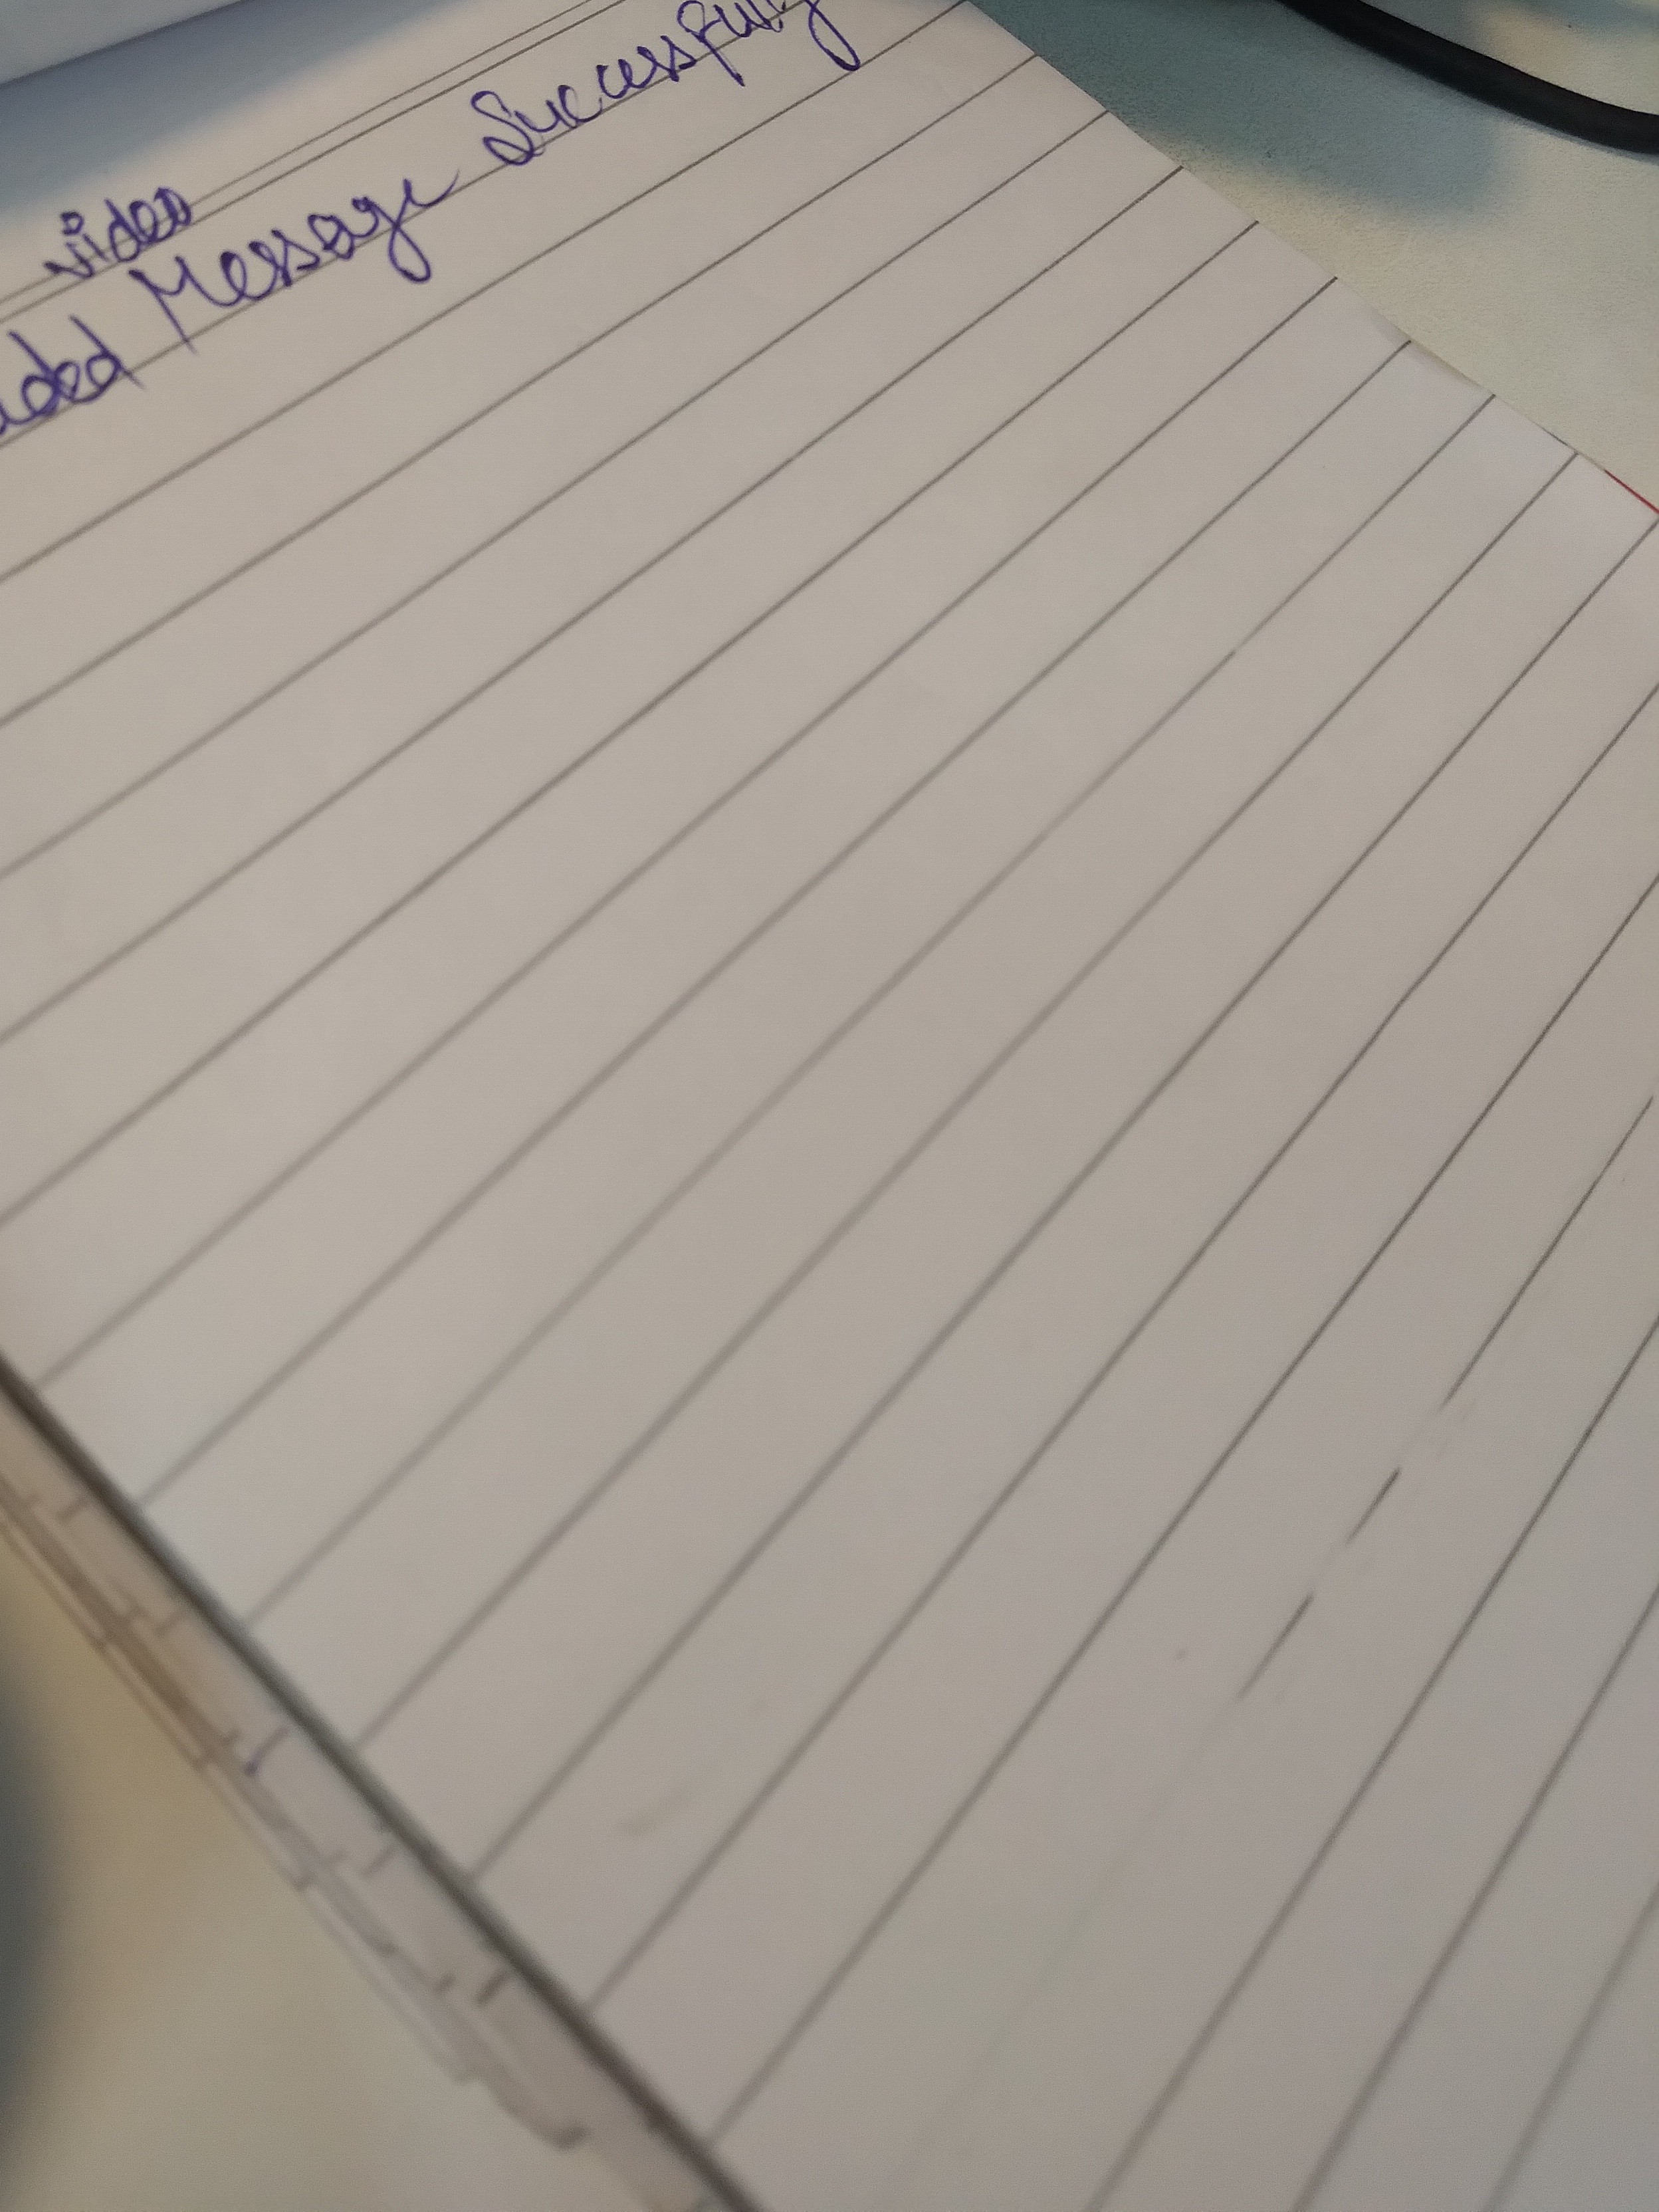 video
Message Successfully